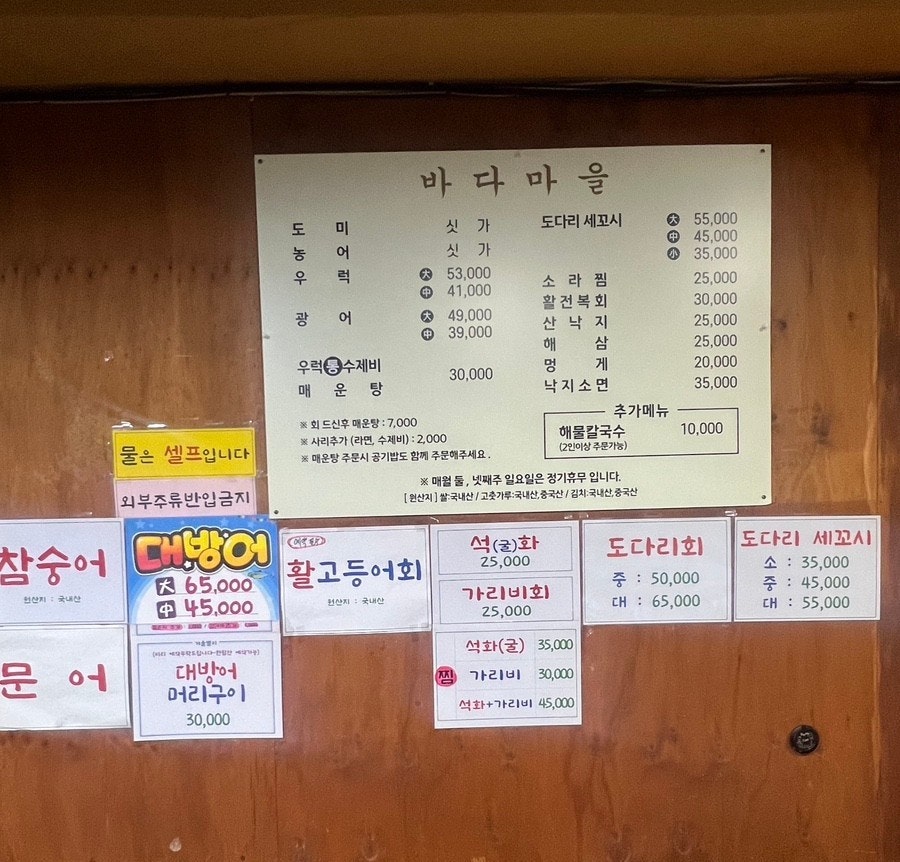 바다마을
도 미 싯 가
농 어 싯 가
우 럭 大 53,000
中 41,000
광 어 大 49,000
中 39,000
우럭통수제비
매 운 탕 30,000
※ 회 드신후 매운탕 : 7,000
※ 사리추가 (라면, 수제비) : 2,000
※ 매운탕 주문시 공기밥도 함께 주문해주세요.
도다리 세꼬시 大 55,000
中 45,000
小 35,000
소 라 찜 25,000
활전복회 30,000
산 낙 지 25,000
해 삼 25,000
멍 게 20,000
낙지소면 35,000
추가메뉴
해물칼국수 10,000
(2인이상 주문가능)
※ 매월 둘, 넷째주 일요일은 정기휴무 입니다.
[ 원산지 ] 쌀:국내산 / 고춧가루:국내산,중국산 / 김치:국내산,중국산
물은 셀프입니다
외부주류반입금지
참숭어
원산지 : 국내산
문 어
대방어
大 65,000
中 45,000
대방어
머리구이
30,000
활고등어회
원산지 : 국내산
석(굴)화
25,000
가리비회
25,000
찜
석화(굴) 35,000
가리비 30,000
석화+가리비 45,000
도다리회
중 : 50,000
대 : 65,000
도다리 세꼬시
소 : 35,000
중 : 45,000
대 : 55,000